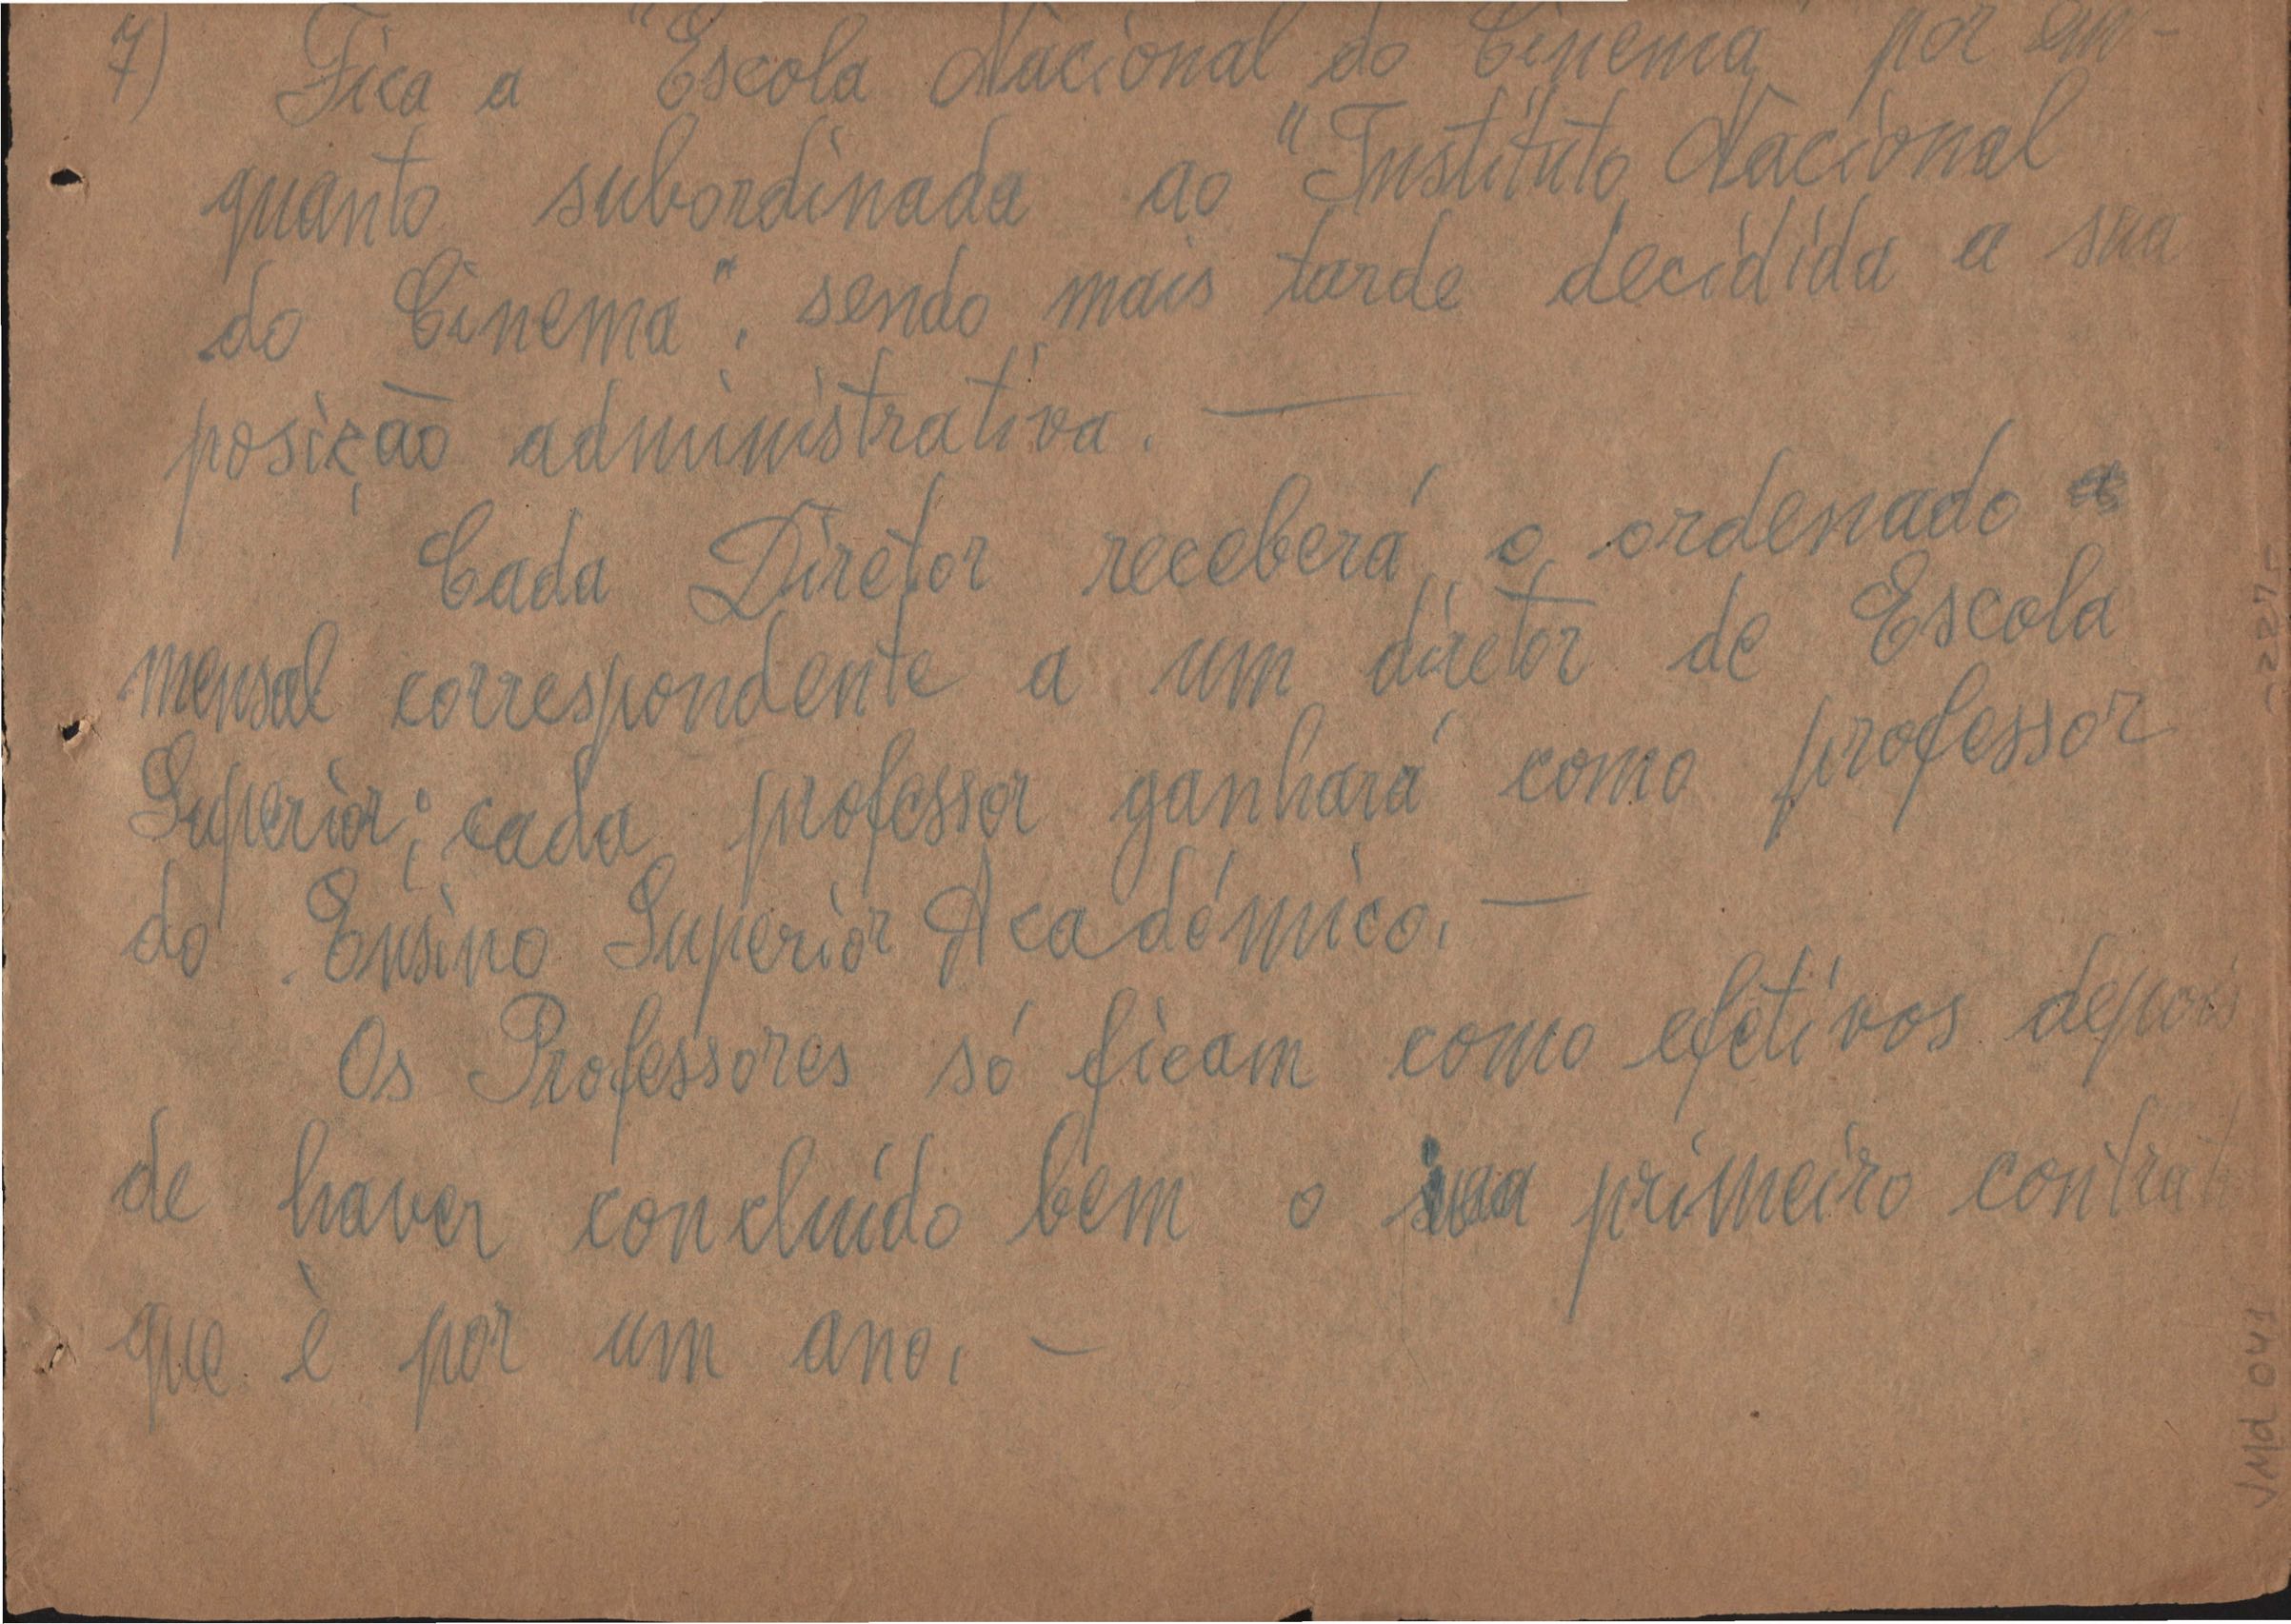 7) Fica a "Escola Nacional do Cinema" por en-
quanto subordinada ao "Instituto Nacional
do Cinema", sendo mais tarde decidida a sua
posição administrativa. —
Cada Diretor receberá o ordenado
mensal correspondente a um diretor de Escola
Superior; cada professor ganhará como professor
do Ensino Superior Académico. —
Os Professores só ficam como efetivos depois
de haver concluído bem o primeiro contrat
que è por um ano. —
VMd 041